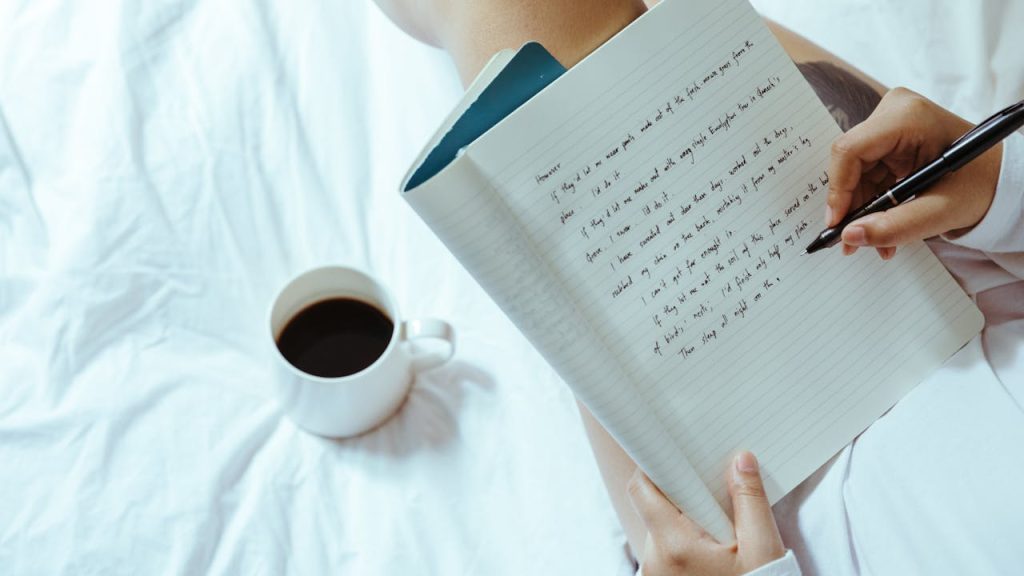 However
If they'd let me wear pants made out of the fresh, moist grass from the
place, I'd do it.
If they'd let me make out with every single Eucalyptus tree in Stomati's
Grove, I never I'd do it.
I have sweated out dew these days, worked out the dregs,
rubbed my chin on tree bark, mistaking it for my master's leg
I can't get far enough in.
If they let me eat the soil of this place served on the bak
of birds' nests, I'd finish only half my plate
Then sleep all night on the